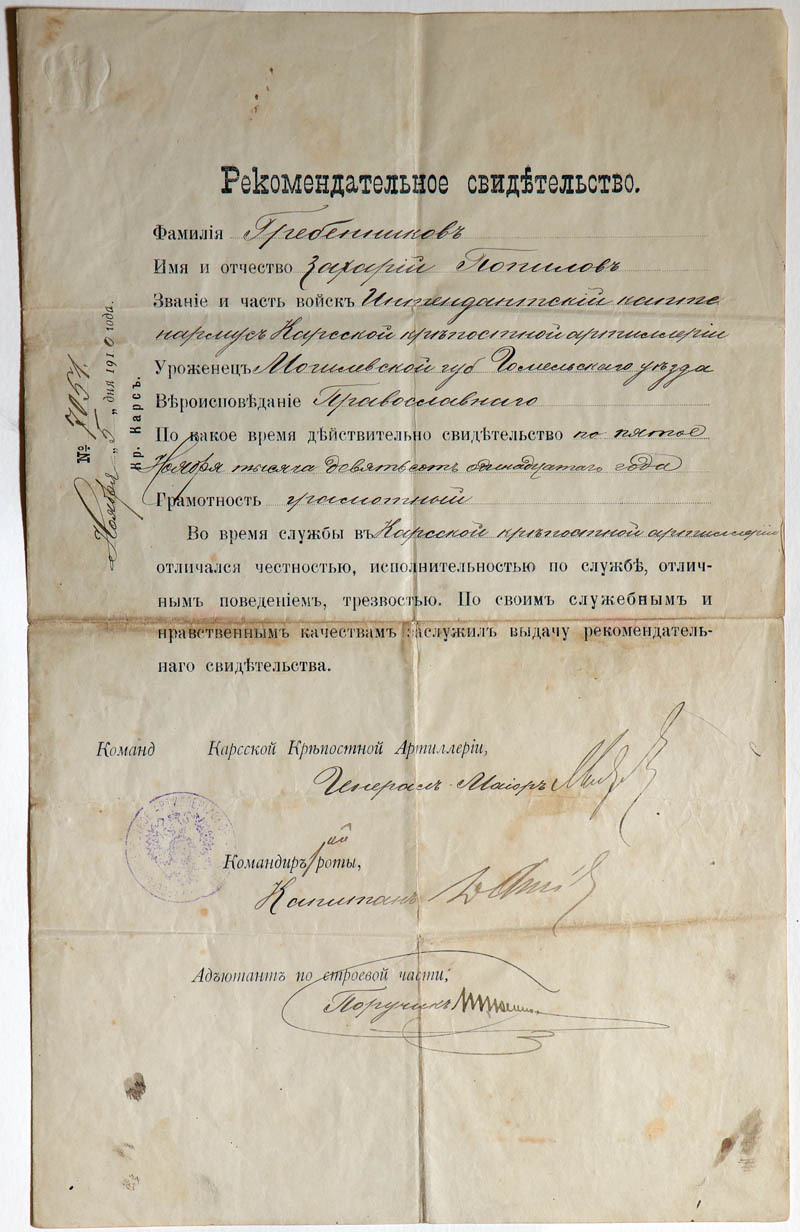 Рекомендательное свидѣтельство.
Фамилія Гребенниковъ
Имя и отчество Захарій Попиловъ
Званіе и часть войскъ Интендантскій каптенармусъ Карсской крѣпостной артиллеріи
Уроженецъ Могилевской губ Гомельскаго уѣзда
Вѣроисповѣданіе Православнаго
По какое время дѣйствительно свидѣтельство по пятое
Ноября тысяча девятьсотъ одинадцатаго года
Грамотность грамотный
Во время службы въ Карсской крѣпостной артиллеріи
отличался честностью, исполнительностью по службѣ, отлич-
нымъ поведеніемъ, трезвостью. По своимъ служебнымъ и
нравственнымъ качествамъ заслужилъ выдачу рекомендатель-
наго свидѣтельства.
№ 7054
Ноября „5„ дня 1910 года.
Кр. Карсъ.
Команд Карсской Крѣпостной Артиллеріи,
Генералъ-Маіоръ
Командиръ 1ой роты,
Капитанъ
Адъютантъ по строевой части,
Поручикъ